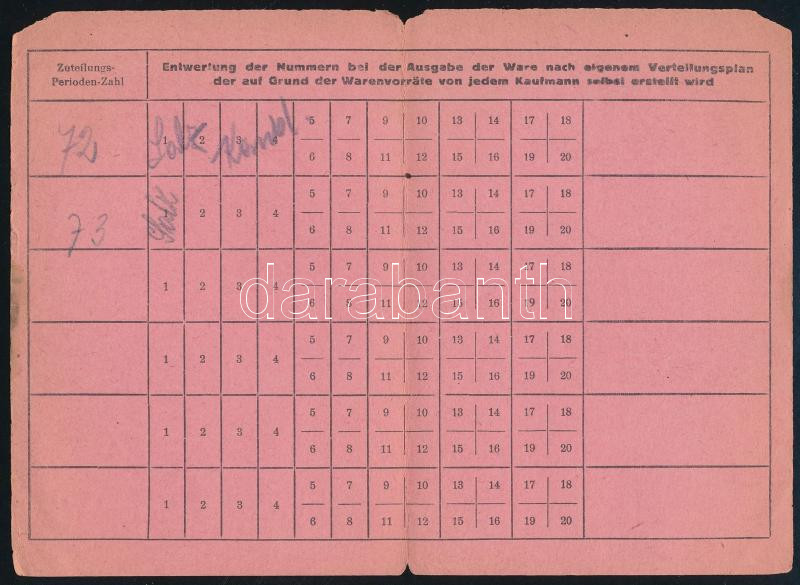 Zuteilungs-
Perioden-Zahl
Entwertung der Nummern bei der Ausgabe der Ware nach eigenem Verteilungsplan
der auf Grund der Warenvorräte von jedem Kaufmann selbst erstellt wird
72
Salz
1 2 3 4 5 7 9 10 13 14 17 18
6 8 11 12 15 16 19 20
73
1 2 3 4 5 7 9 10 13 14 17 18
6 8 11 12 15 16 19 20
1 2 3 4 5 7 9 10 13 14 17 18
6 8 11 12 15 16 19 20
darabanth
1 2 3 4 5 7 9 10 13 14 17 18
6 8 11 12 15 16 19 20
1 2 3 4 5 7 9 10 13 14 17 18
6 8 11 12 15 16 19 20
1 2 3 4 5 7 9 10 13 14 17 18
6 8 11 12 15 16 19 20